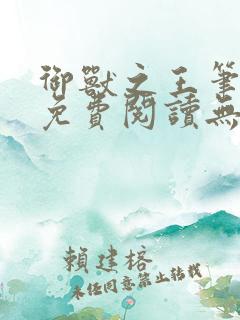 御獸之王筆
免費閱讀無
賴建榕
未经同意禁止转载